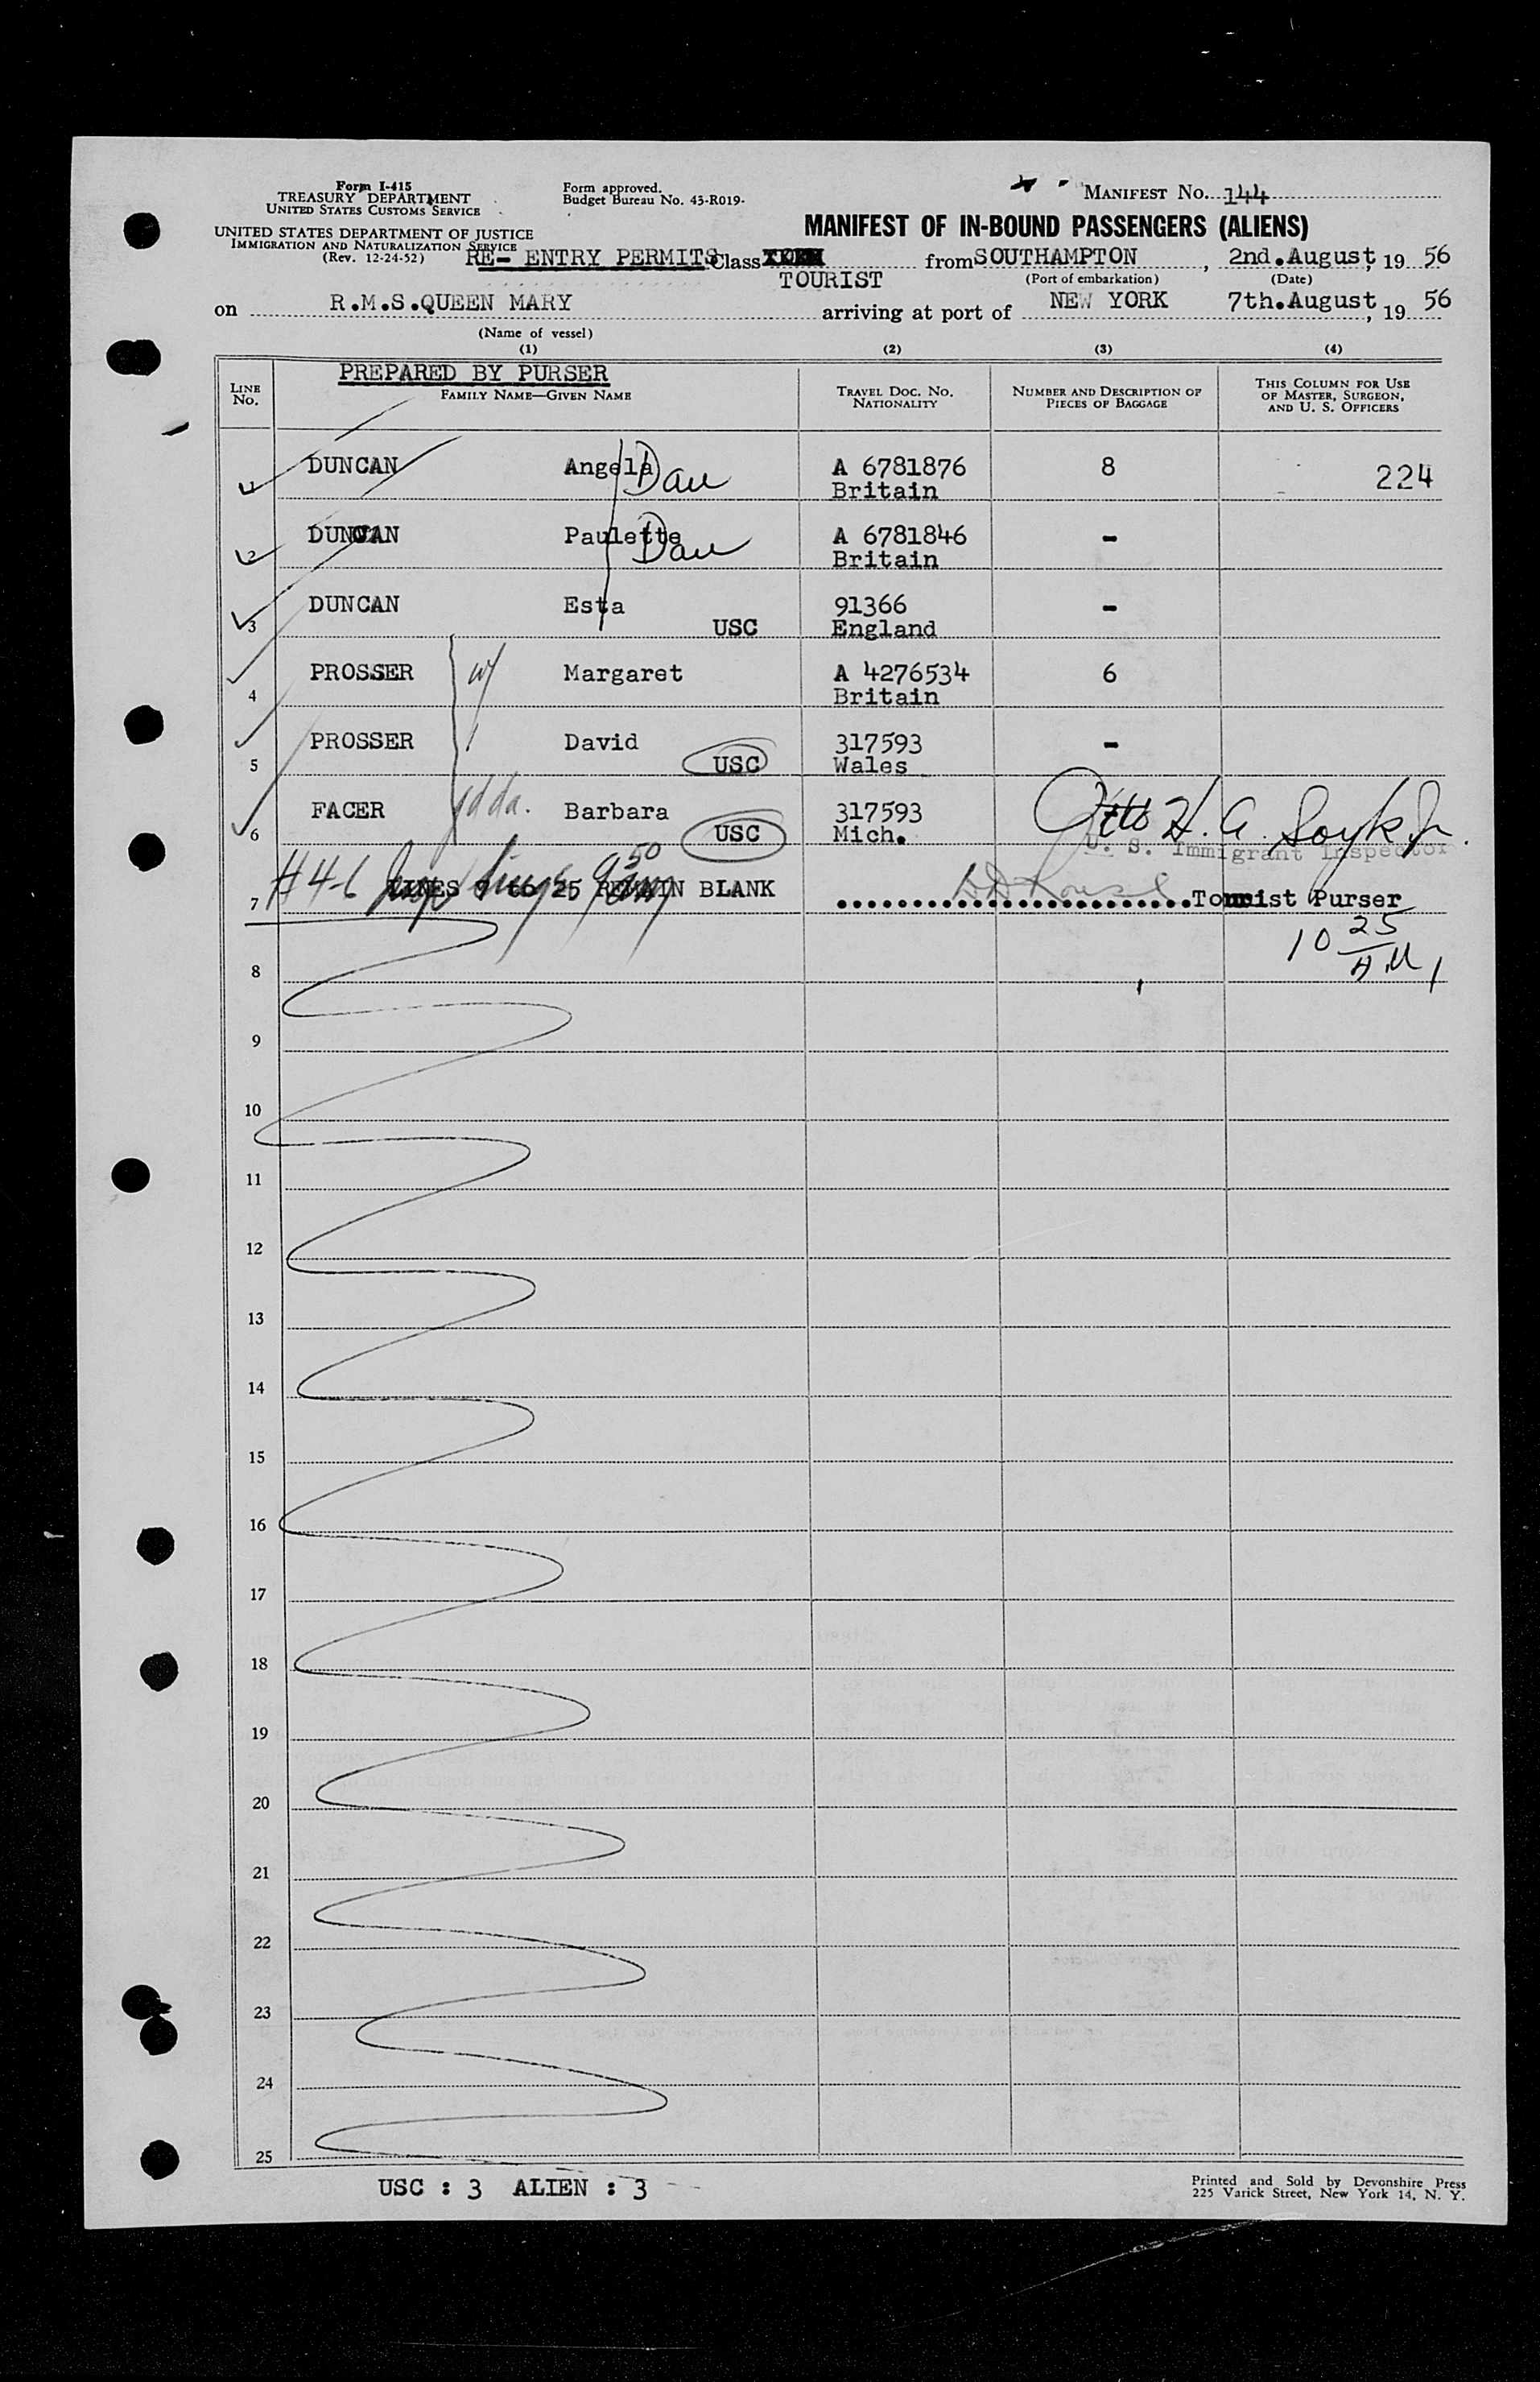 Form I-415
TREASURY DEPARTMENT
UNITED STATES CUSTOMS SERVICE
Form approved.
Budget Bureau No. 43-R019-
MANIFEST No. 144
UNITED STATES DEPARTMENT OF JUSTICE
IMMIGRATION AND NATURALIZATION SERVICE
(Rev. 12-24-52)
MANIFEST OF IN-BOUND PASSENGERS (ALIENS)
RE- ENTRY PERMITS Class TOURIST from SOUTHAMPTON, 2nd.August, 19 56
(Port of embarkation) (Date)
on R.M.S.QUEEN MARY arriving at port of NEW YORK 7th.August, 19 56
(Name of vessel)
(1) (2) (3) (4)
PREPARED BY PURSER
LINE No. FAMILY NAME—GIVEN NAME TRAVEL DOC. No. NATIONALITY NUMBER AND DESCRIPTION OF PIECES OF BAGGAGE THIS COLUMN FOR USE OF MASTER, SURGEON, AND U. S. OFFICERS
1 DUNCAN Angela Dau A 6781876 8 224
Britain
2 DUNCAN Paulette Dau A 6781846 -
Britain
3 DUNCAN Esta 91366 -
USC England
4 PROSSER w/ Margaret A 4276534 6
Britain
5 PROSSER David 317593 -
USC Wales
6 FACER Barbara 317593
USC Mich.
H. A.
U. S. Immigrant Inspector
#4-6
7 LINES 7 to 25 REMAIN BLANK Tourist Purser
10 25 AM
8
9
10
11
12
13
14
15
16
17
18
19
20
21
22
23
24
25
USC : 3 ALIEN : 3
Printed and Sold by Devonshire Press
225 Varick Street, New York 14, N. Y.